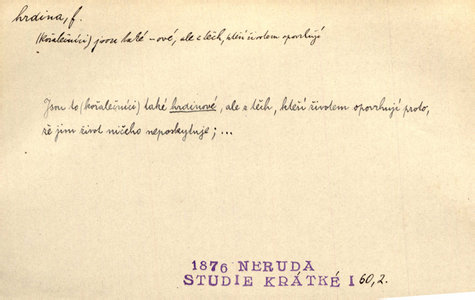 hrdina, f.
(Kořalečníci) jsou také -ové, ale z těch, kteří životem opovrhují
Jsou to (kořalečníci) také hrdinové, ale z těch, kteří životem opovrhují proto,
že jim život ničeho neposkytuje; ...
1876 NERUDA
STUDIE KRÁTKÉ I 60,2.